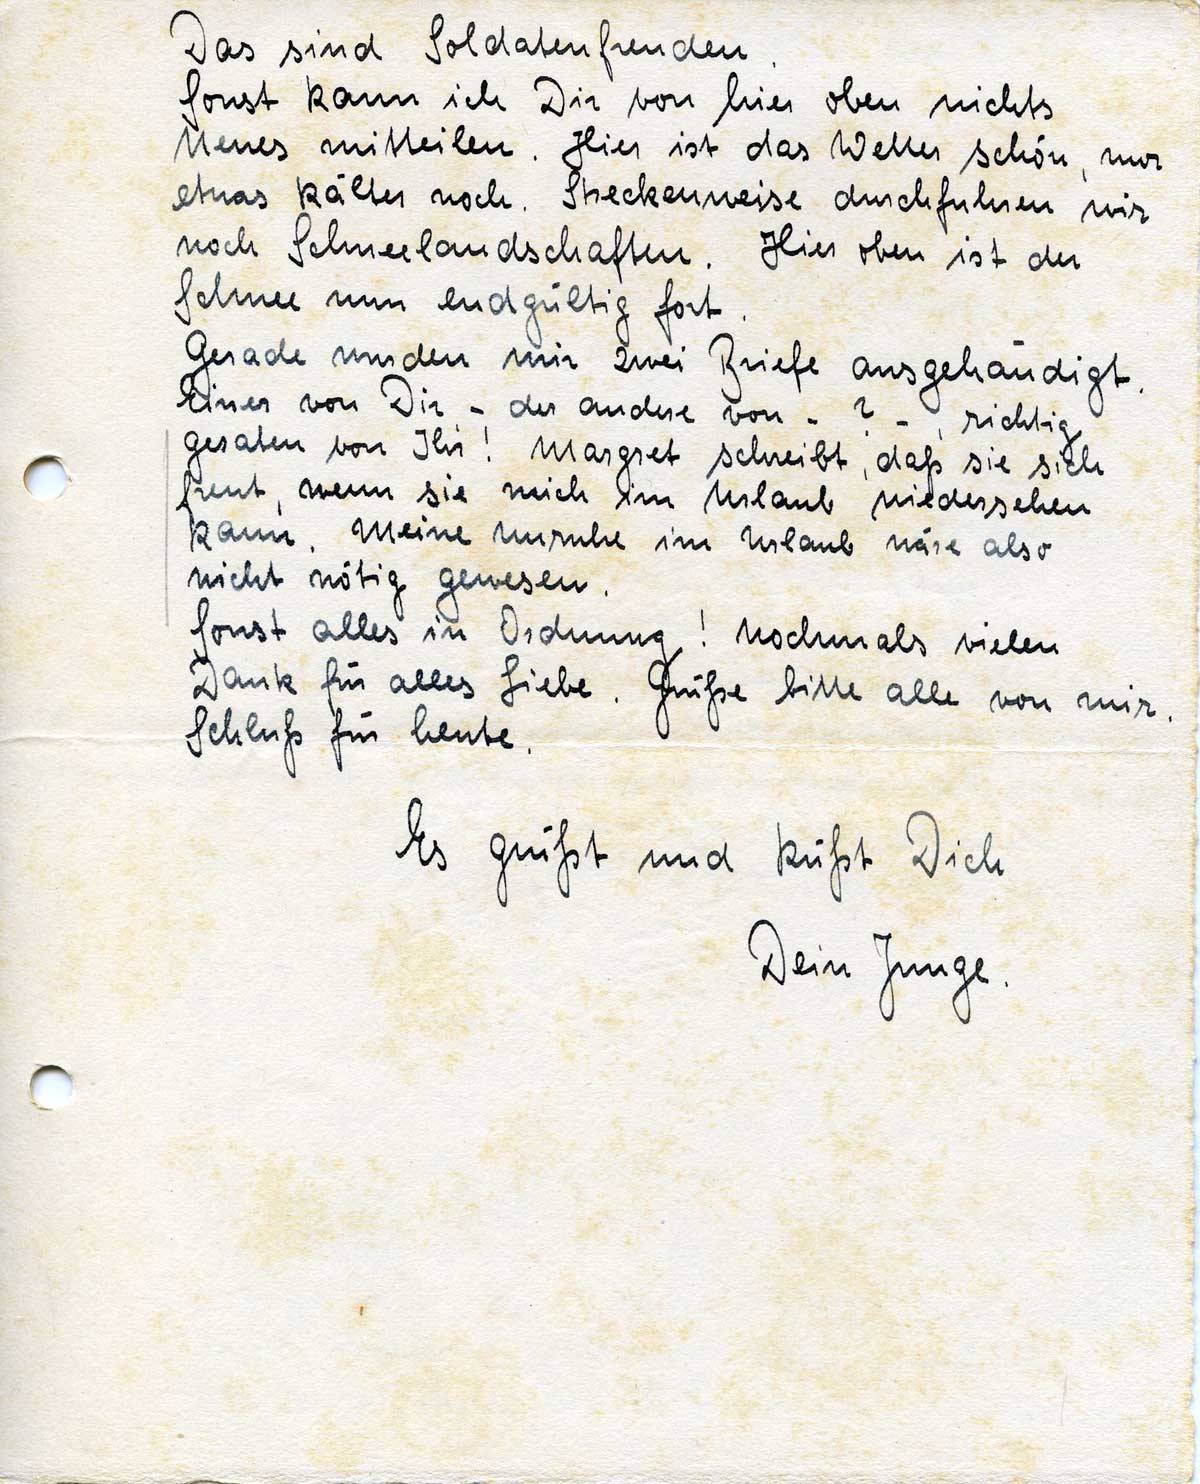 Das sind Soldatenfreuden.
Sonst kann ich Dir von hier oben nichts
Neues mitteilen. Hier ist das Wetter schön, nur
etwas kälter noch. Streckenweise durchfuhren wir
noch Schneelandschaften. Hier oben ist der
Schnee nun endgültig fort.
Gerade wurden mir zwei Briefe ausgehändigt.
Einer von Dir, - der andere von - ? - , richtig
geraten von Ihr! Margret schreibt, daß sie sich
freut, wenn sie mich im Urlaub wiedersehen
kann. Meine Unruhe im Urlaub wäre also
nicht nötig gewesen.
Sonst alles in Ordnung! Nochmals vielen
Dank für alles Liebe. Grüße bitte alle von mir.
Schluß für heute.
Es grüßt und küßt Dich
Dein Junge.